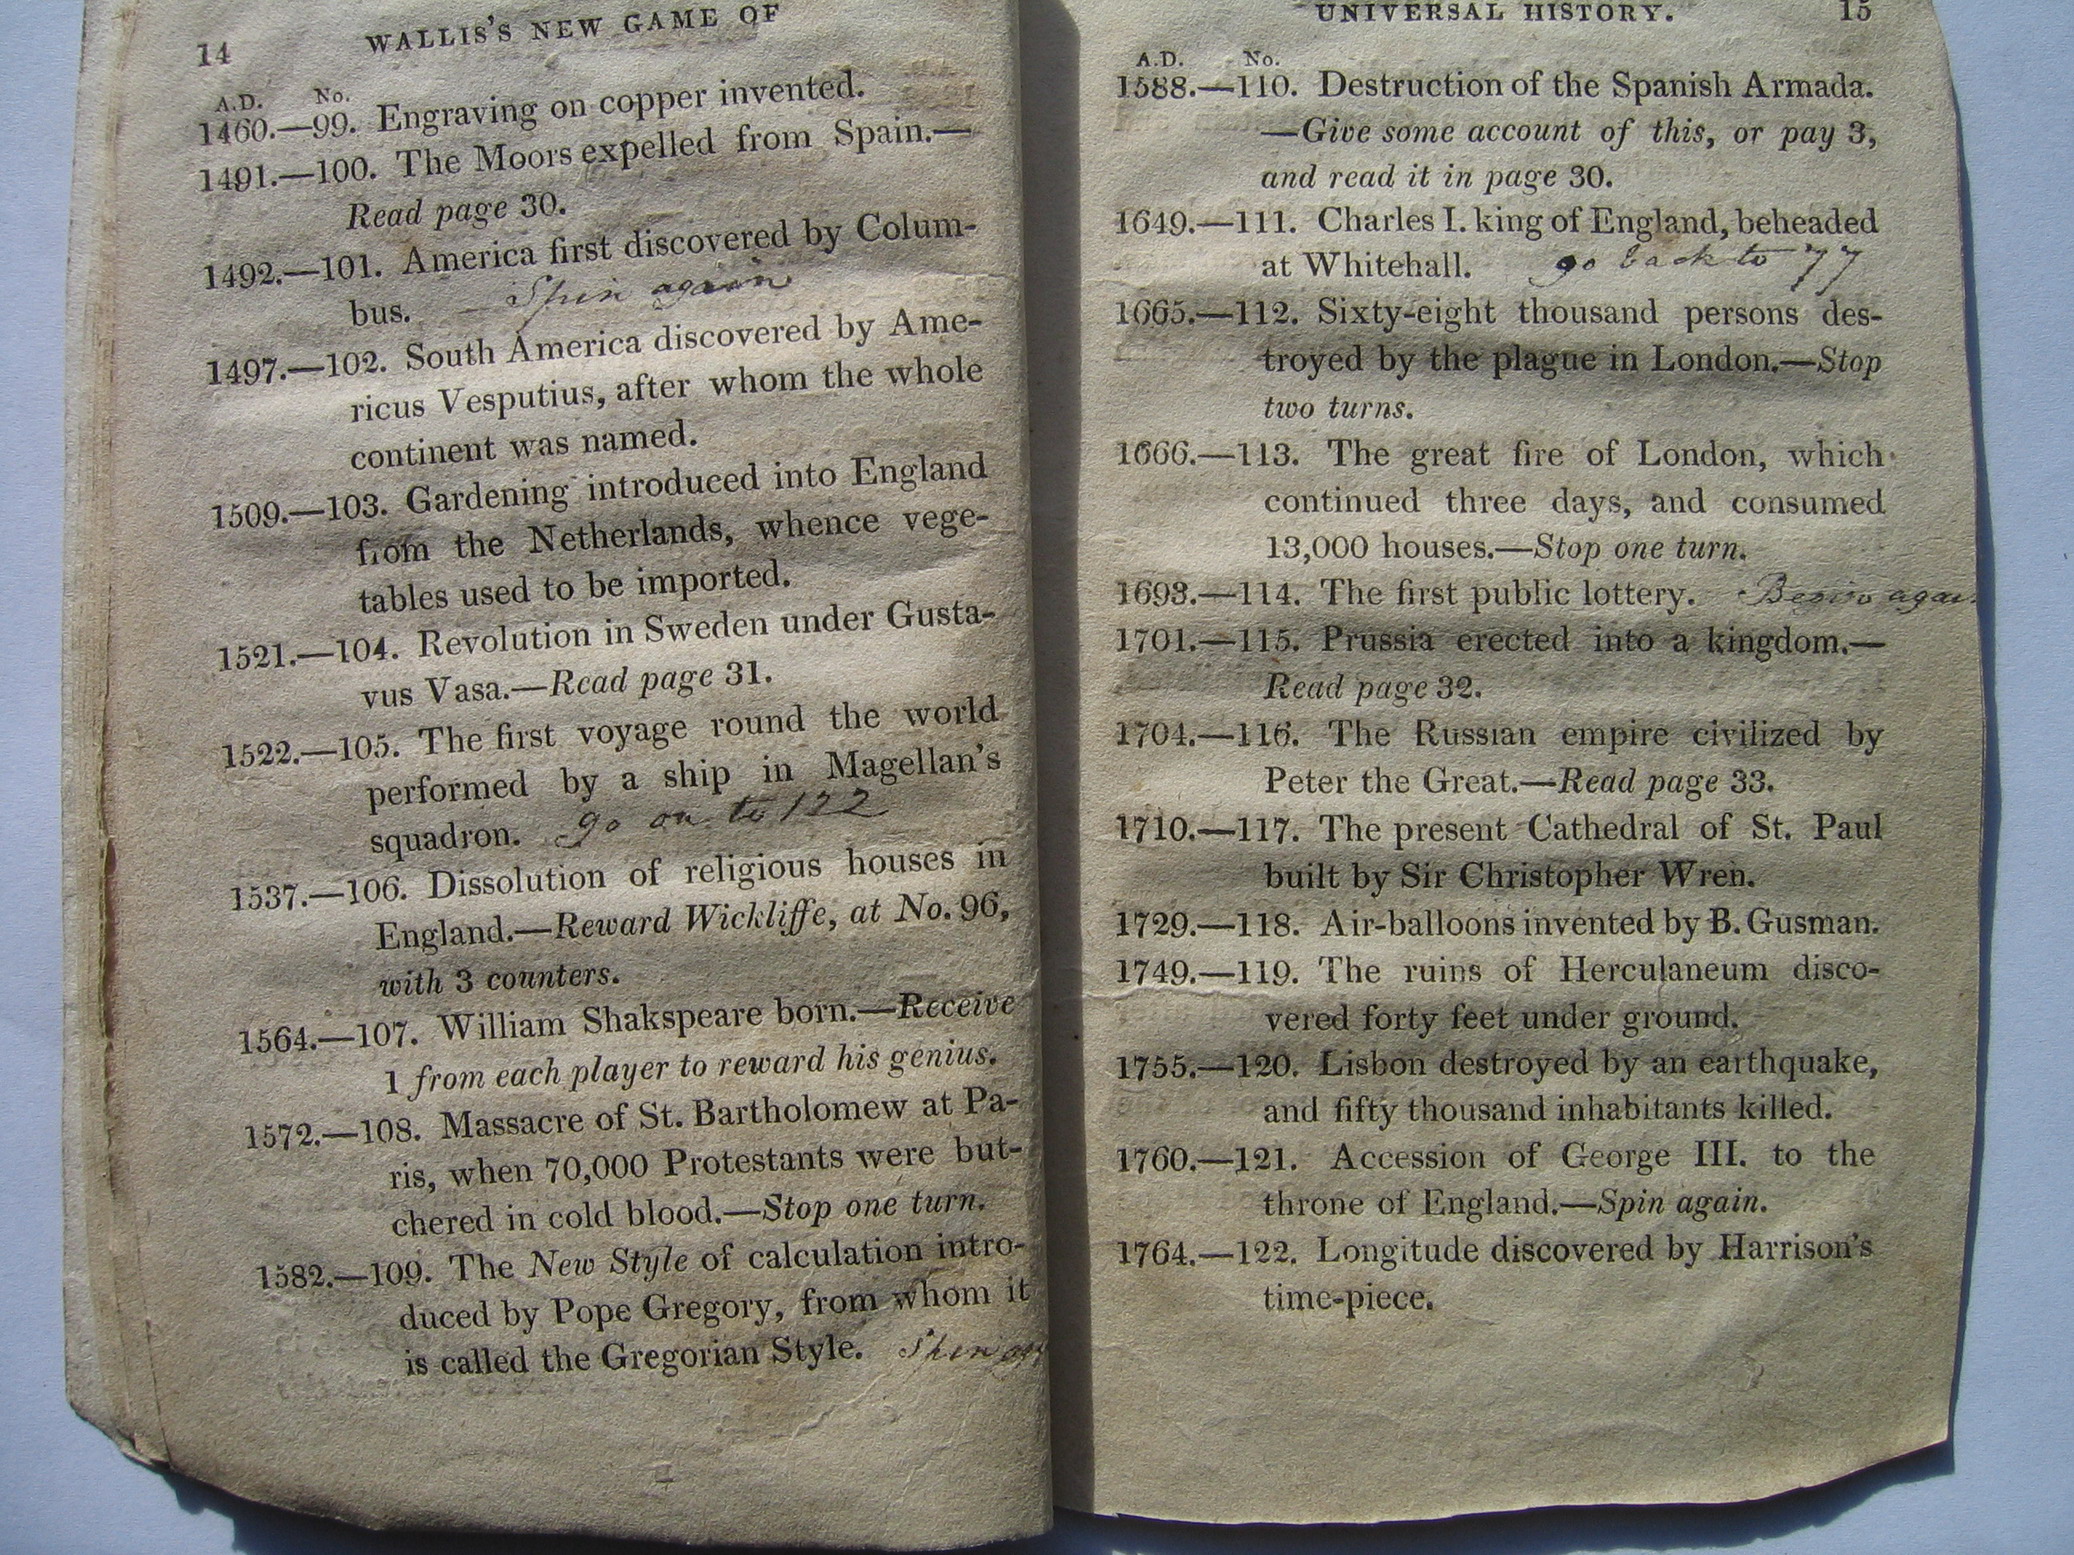 14 WALLIS'S NEW GAME OF
A.D. No.
1460.—99. Engraving on copper invented.
1491.—100. The Moors expelled from Spain.—
Read page 30.
1492.—101. America first discovered by Colum-
bus. Spin again
1497.—102. South America discovered by Ame-
ricus Vesputius, after whom the whole
continent was named.
1509.—103. Gardening introduced into England
from the Netherlands, whence vege-
tables used to be imported.
1521.—104. Revolution in Sweden under Gusta-
vus Vasa.—Read page 31.
1522.—105. The first voyage round the world
performed by a ship in Magellan's
squadron. go on to 122
1537.—106. Dissolution of religious houses in
England.—Reward Wickliffe, at No. 96,
with 3 counters.
1564.—107. William Shakspeare born.—Receive
1 from each player to reward his genius.
1572.—108. Massacre of St. Bartholomew at Pa-
ris, when 70,000 Protestants were but-
chered in cold blood.—Stop one turn.
1582.—109. The New Style of calculation intro-
duced by Pope Gregory, from whom it
is called the Gregorian Style. Spin
UNIVERSAL HISTORY. 15
A.D. No.
1588.—110. Destruction of the Spanish Armada.
—Give some account of this, or pay 3,
and read it in page 30.
1649.—111. Charles I. king of England, beheaded
at Whitehall. go back to 77
1665.—112. Sixty-eight thousand persons des-
troyed by the plague in London.—Stop
two turns.
1666.—113. The great fire of London, which
continued three days, and consumed
13,000 houses.—Stop one turn.
1693.—114. The first public lottery. Begin again
1701.—115. Prussia erected into a kingdom.—
Read page 32.
1704.—116. The Russian empire civilized by
Peter the Great.—Read page 33.
1710.—117. The present Cathedral of St. Paul
built by Sir Christopher Wren.
1729.—118. Air-balloons invented by B. Gusman.
1749.—119. The ruins of Herculaneum disco-
vered forty feet under ground.
1755.—120. Lisbon destroyed by an earthquake,
and fifty thousand inhabitants killed.
1760.—121. Accession of George III. to the
throne of England.—Spin again.
1764.—122. Longitude discovered by Harrison's
time-piece.